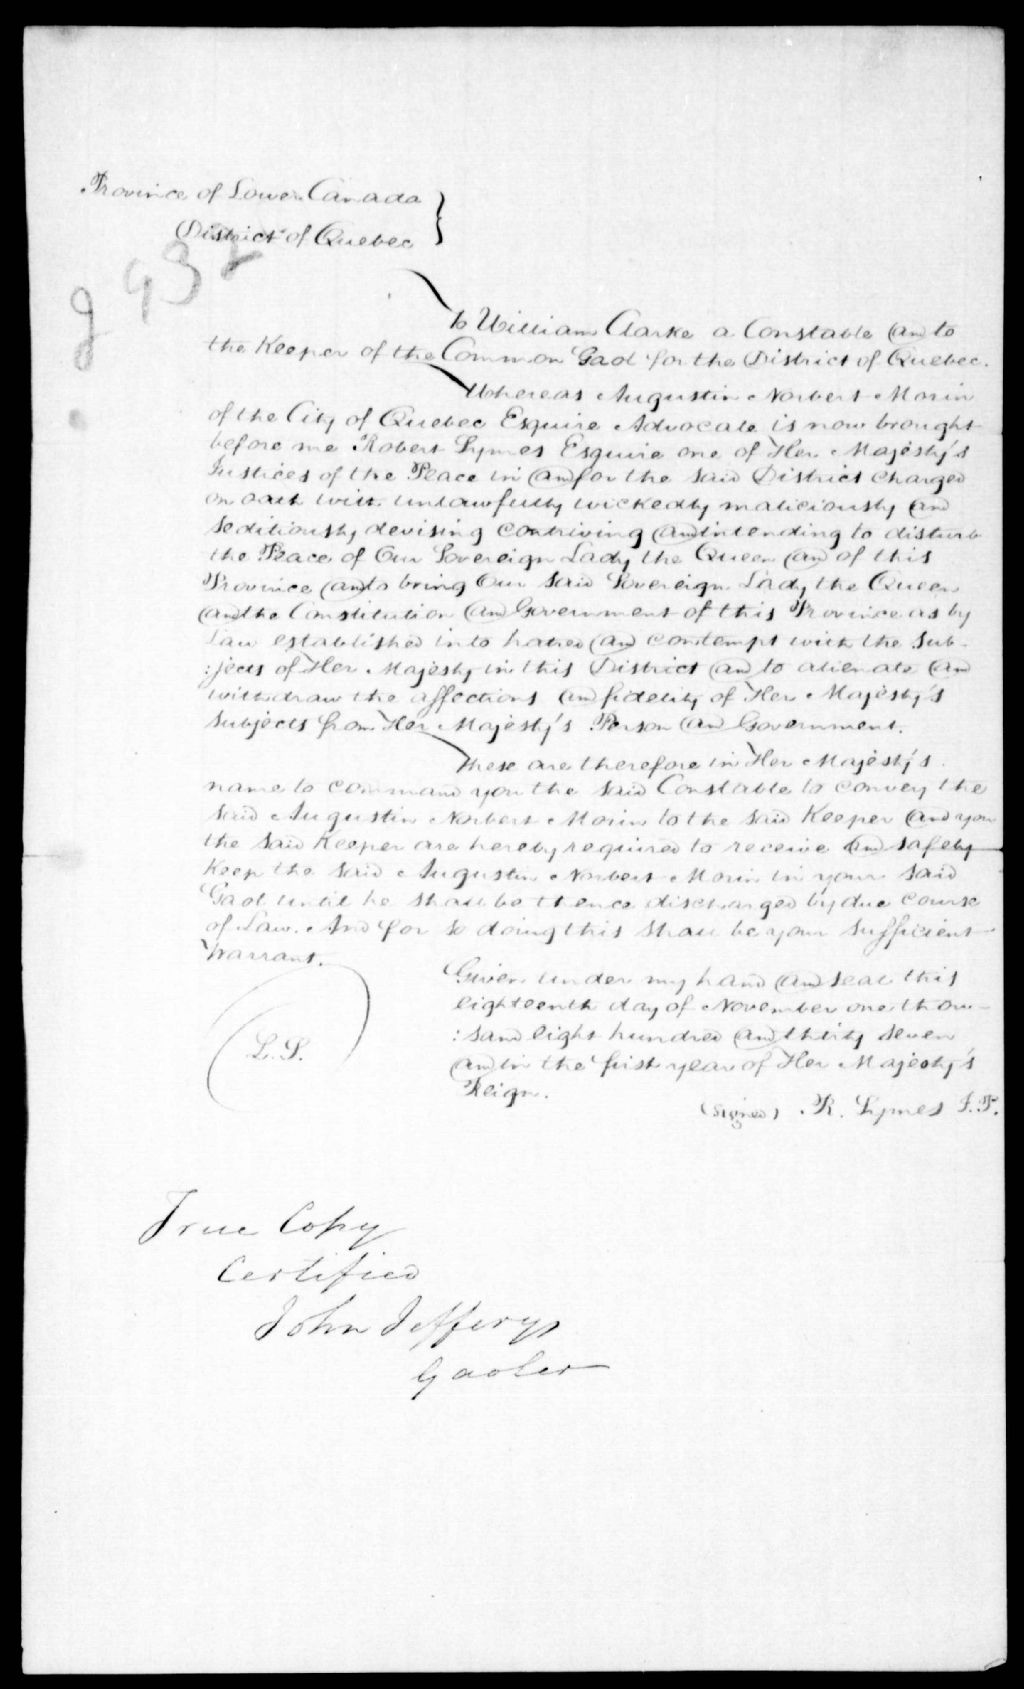 Province of Lower Canada }
District of Quebec
To William Clarke a Constable and to
the Keeper of the Common Gaol for the District of Quebec.
Whereas Augustin Norbert Morin
of the City of Quebec Esquire Advocate is now brought
before me Robert Symes Esquire one of Her Majesty's
Justices of the Peace in and for the said District charged
on oath with unlawfully wickedly maliciously and
seditiously devising contriving and intending to disturb
the Peace of Our Sovereign Lady the Queen and of this
Province and to bring Our said Sovereign Lady the Queen
and the Constitution and Government of this Province as by
Law established into hatred and contempt with the Sub-
:jects of Her Majesty in this District and to alienate and
withdraw the affections and fidelity of Her Majesty's
Subjects from Her Majesty's Person and Government.
These are therefore in Her Majesty's
name to command you the said Constable to convey the
said Augustin Norbert Morin to the said Keeper and you
the said Keeper are hereby required to receive and safely
Keep the said Augustin Norbert Morin in your said
Gaol until he shall be thence discharged by due course
of Law. And for so doing this shall be your sufficient
Warrant.
Given under my hand and seal this
eighteenth day of November one thou-
:sand eight hundred and thirty seven
and in the first year of Her Majesty's
Reign.
L. S.
(signed) R. Symes J.P.
True Copy
Certified
John Jefferys
Gaoler